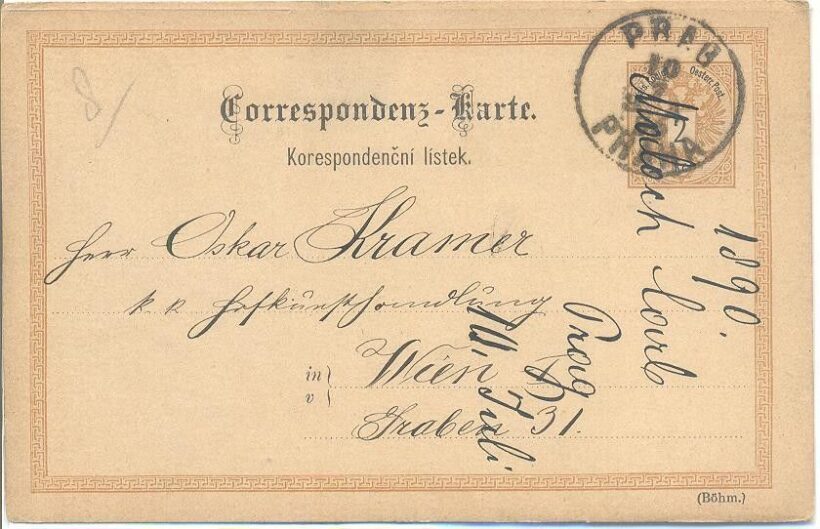 Correspondenz-Karte.
Korespondenční lístek.
PRAG
10
PRAHA
Oesterr. Post.
2
Herr Oskar Kramer
k. k. Hofkunsthandlung
in
v
Wien
Graben 31.
1890.
Carl
Prag
10. Juli
8
(Böhm.)